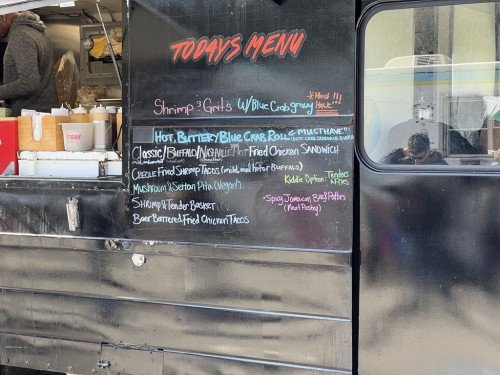 TODAYS MENU
Shrimp & Grits W/ Blue Crab gravy *Must Have!!!
HOT, BUTTERY BLUE CRAB ROLL "MUST HAVE"
Classic/Buffalo/Nashville Hot Fried Chicken SANDWICH
Creole Fried Shrimp TACOS (mild, med, Hot or BUFFALO)
Kiddie Option: Tenders & Fries
Mushroom & Seitan Pita (Vegan)
*Spicy Jamaican Beef Patties (Meat Pastry)
SHRIMP & Tender BASKET
Beer Battered Fried Chicken TACOS